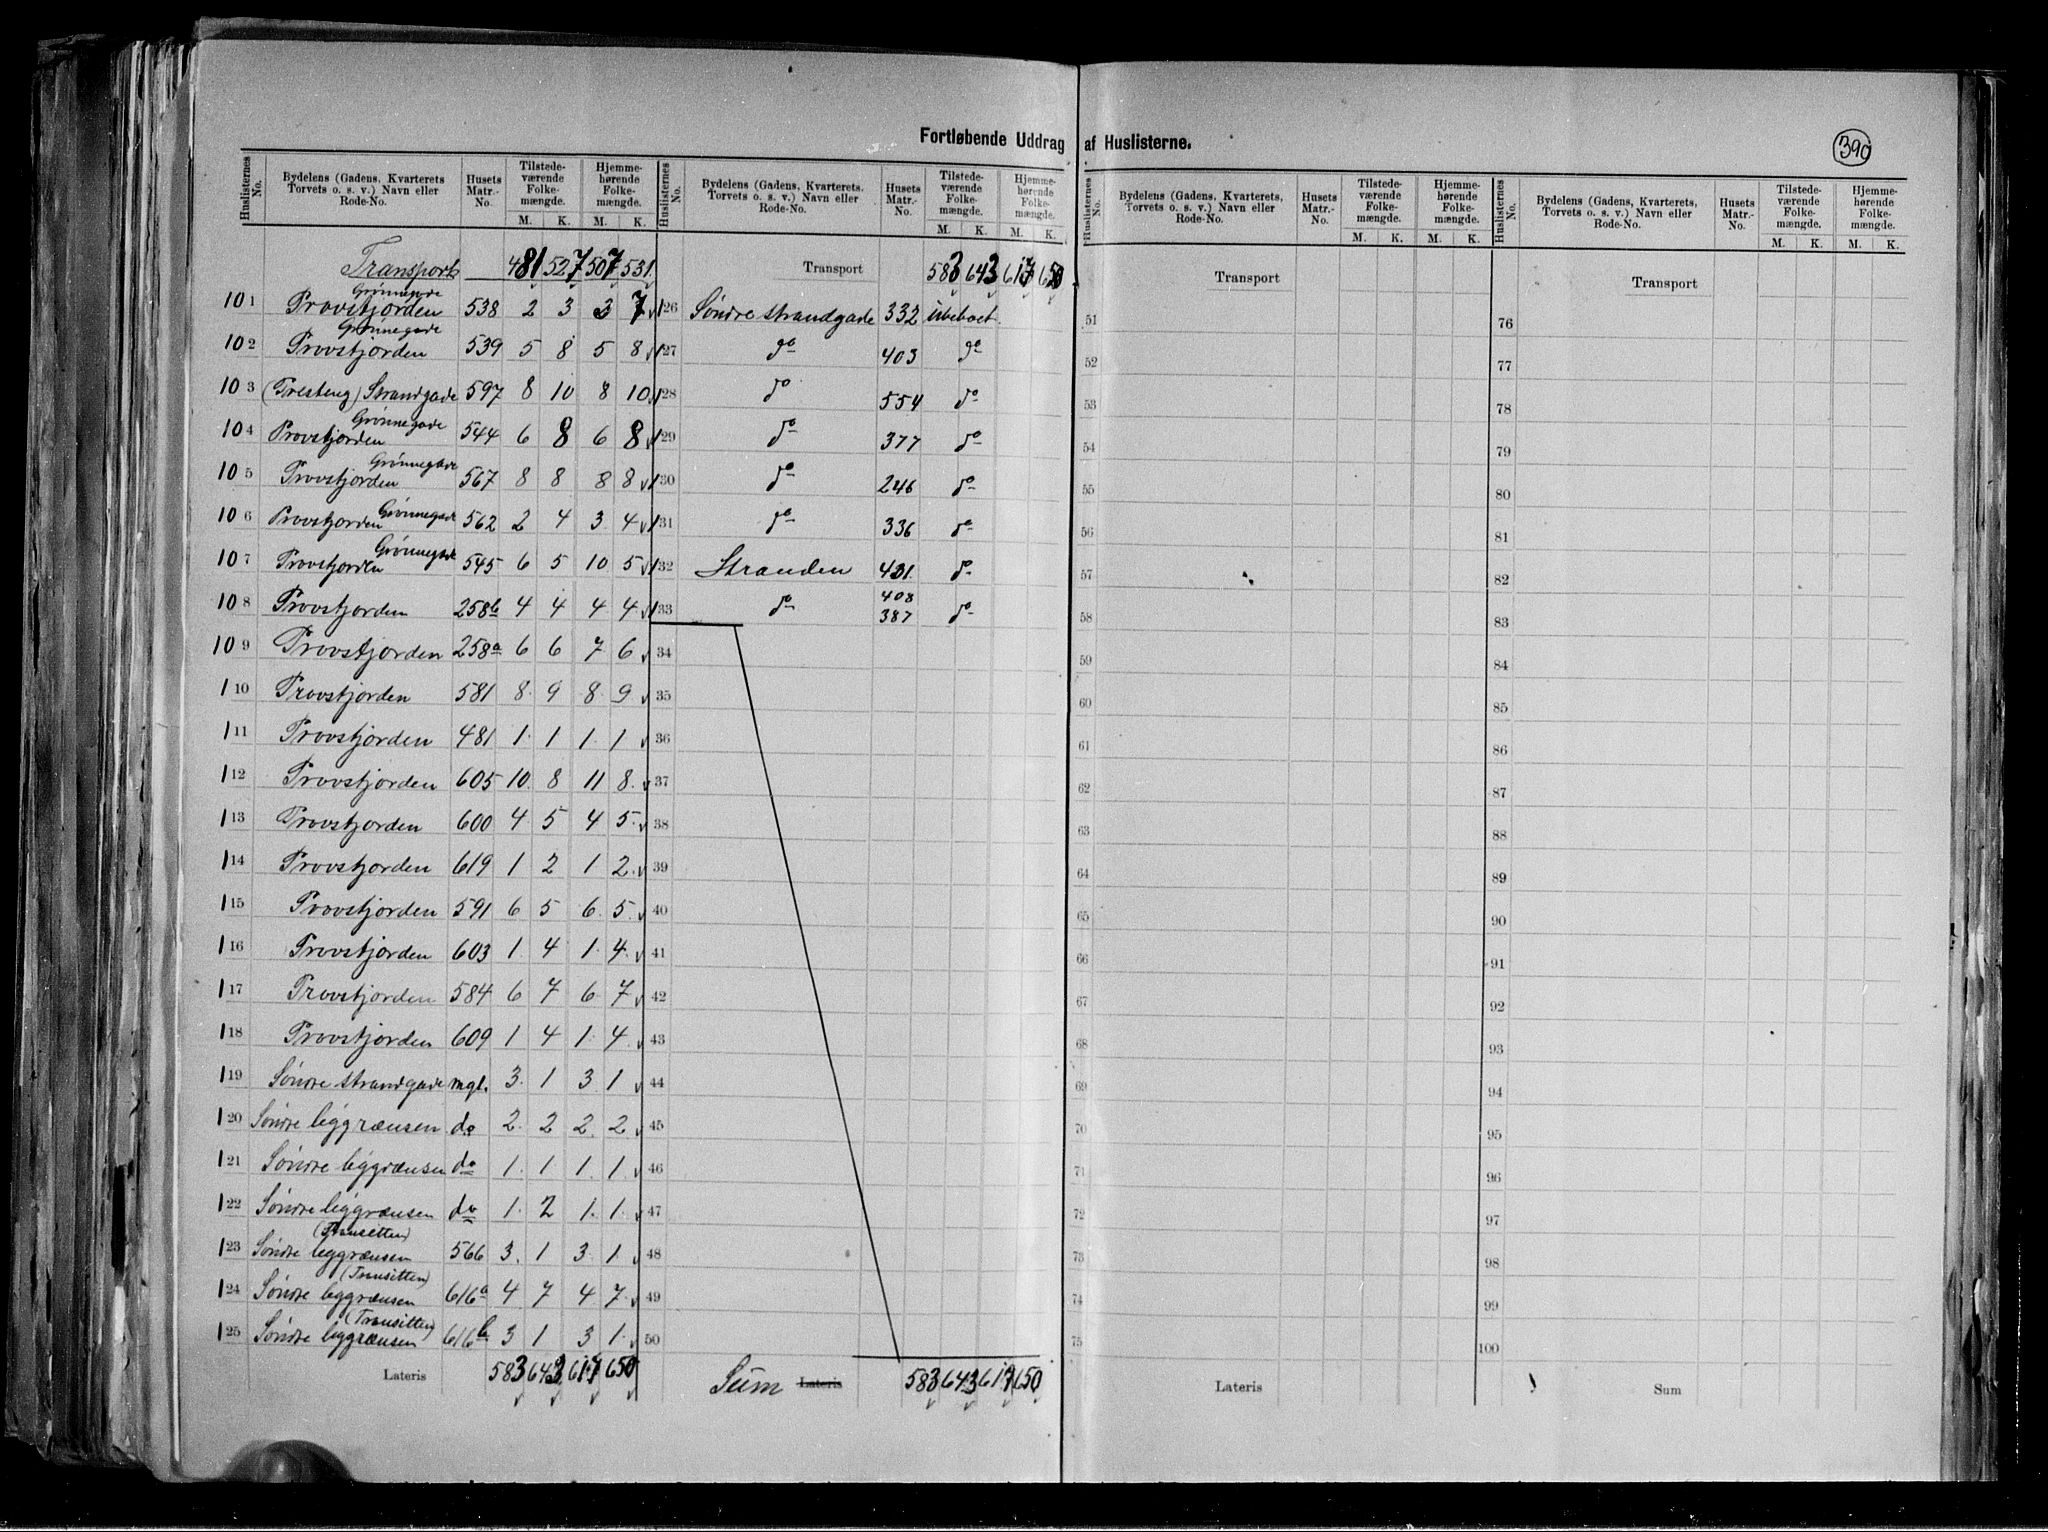 Fortløbende Uddrag af Huslisterne.
390
Huslisternes No. | Bydelens (Gadens, Kvarterets Torvets o. s. v.) Navn eller Rode-No. | Husets Matr.-No. | Tilstede-værende Folke-mængde. M. K. | Hjemme-hørende Folke-mængde. M. K.
Transport 481 527 507 531.
101 Provstjorden Grønnegade 538 2 3 3 7
102 Provstjorden Grønnegade 539 5 8 5 8
103 (Presteng) Strandgade 597 8 10 8 10
104 Provstjorden Grønnegade 544 6 8 6 8
105 Provstjorden Grønnegade 567 8 8 8 8
106 Provstjorden Grønnegade 562 2 4 3 4
107 Provstjorden Grønnegade 545 6 5 10 5
108 Provstjorden 258b 4 4 4 4
109 Provstjorden 258a 6 6 7 6
110 Provstjorden 581 8 9 8 9
111 Provstjorden 481 1 1 1 1
112 Provstjorden 605 10 8 11 8
113 Provstjorden 600 4 5 4 5
114 Provstjorden 619 1 2 1 2
115 Provstjorden 591 6 5 6 5
116 Provstjorden 603 1 4 1 4
117 Provstjorden 584 6 7 6 7
118 Provstjorden 609 1 4 1 4
119 Søndre strandgade mgl. 3 1 3 1
120 Søndre byggrænsen do 2 2 2 2
121 Søndre byggrænsen do 1 1 1 1
122 Søndre byggrænsen do 1 2 1 1
123 Søndre byggrænsen (Transitten) 566 3 1 3 1
124 Søndre byggrænsen (Transitten) 616a 4 7 4 7
125 Søndre byggrænsen (Transitten) 616b 3 1 3 1
Lateris 583 643 617 650
Huslisternes No. | Bydelens (Gadens, Kvarterets, Torvets o. s. v.) Navn eller Rode-No. | Husets Matr.-No. | Tilstede-værende Folke-mængde. M. K. | Hjemme-hørende Folke-mængde. M. K.
Transport 583 643 617 650
126 Søndre strandgade 332 ubeboet.
127 do 403 do
128 do 554 do
129 do 377 do
130 do 246 do
131 do 336 do
132 Stranden 431. do
133 do 408 387 do
34
35
36
37
38
39
40
41
42
43
44
45
46
47
48
49
50
Sum Lateris 583 643 617 650
Huslisternes No. | Bydelens (Gadens, Kvarterets, Torvets o. s. v.) Navn eller Rode-No. | Husets Matr.-No. | Tilstede-værende Folke-mængde. M. K. | Hjemme-hørende Folke-mængde. M. K.
Transport
51
52
53
54
55
56
57
58
59
60
61
62
63
64
65
66
67
68
69
70
71
72
73
74
75
Lateris
Huslisternes No. | Bydelens (Gadens, Kvarterets, Torvets o. s. v.) Navn eller Rode-No. | Husets Matr.-No. | Tilstede-værende Folke-mængde. M. K. | Hjemme-hørende Folke-mængde. M. K.
Transport
76
77
78
79
80
81
82
83
84
85
86
87
88
89
90
91
92
93
94
95
96
97
98
99
100
Sum